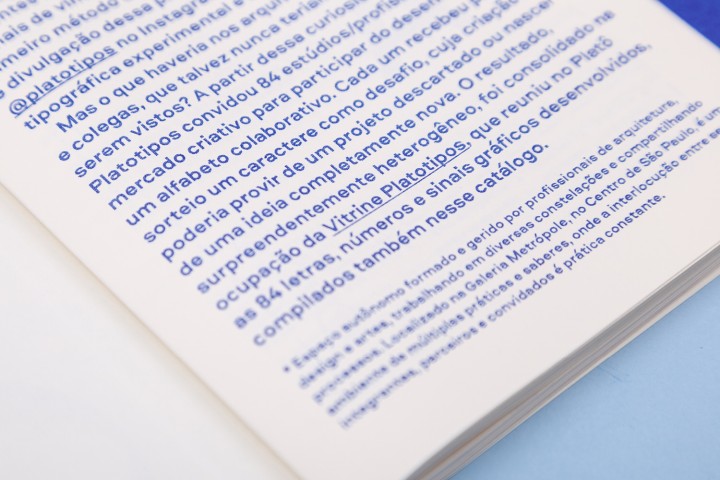 nais de vin
imeiro método
divulgação dessa p
@platotipos no Instagram
tipográfica experimental e
Mas o que haveria nos arqui
e colegas, que talvez nunca teriam
serem vistos? A partir dessa curiosid
Platotipos convidou 84 estúdios/profis
mercado criativo para participar do desen
um alfabeto colaborativo. Cada um recebeu p
sorteio um caractere como desafio, cuja criação
poderia provir de um projeto descartado ou nascer
de uma ideia completamente nova. O resultado,
surpreendentemente heterogêneo, foi consolidado na
ocupação da Vitrine Platotipos, que reuniu no Platô
as 84 letras, números e sinais gráficos desenvolvidos,
compilados também nesse catálogo.
* Espaço autônomo formado e gerido por profissionais de arquitetura,
design e artes, trabalhando em diversas constelações e compartilhando
processos. Localizado na Galeria Metrópole, no Centro de São Paulo, é um
ambiente de múltiplas práticas e saberes, onde a interlocução entre
integrantes, parceiros e convidados é prática constante.